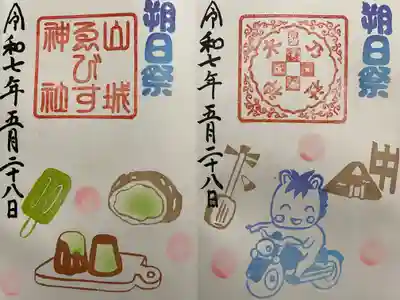 朔日祭
令和七年五月二十八日
朔日祭
山城
ゑびす
神社
令和七年五月二十八日